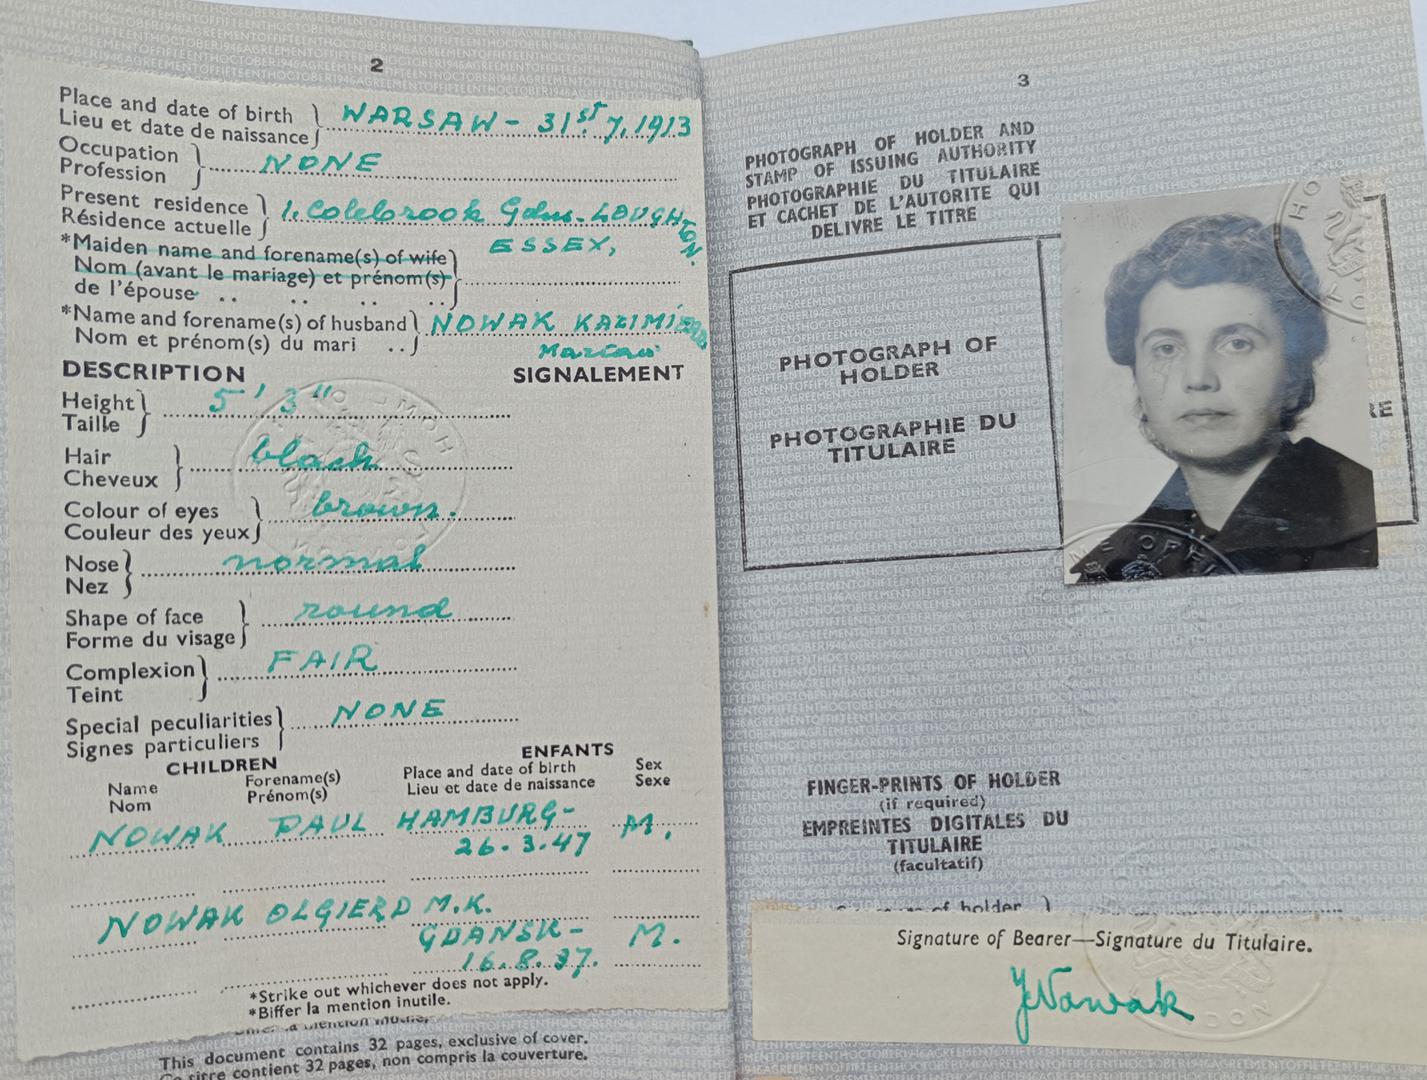 2
Place and date of birth
Lieu et date de naissance
WARSAW - 31st. 7. 1913
Occupation
Profession
NONE
Present residence
Résidence actuelle
1. Colebrook Gdns. LOUGHTON.
ESSEX,
*Maiden name and forename(s) of wife
Nom (avant le mariage) et prénom(s)
de l'épouse .. .. .. ..
*Name and forename(s) of husband
Nom et prénom(s) du mari ..
NOWAK
DESCRIPTION SIGNALEMENT
Height
Taille
5' 3"
Hair
Cheveux
black
Colour of eyes
Couleur des yeux
brown.
Nose
Nez
normal
Shape of face
Forme du visage
round
Complexion
Teint
FAIR
Special peculiarities
Signes particuliers
NONE
CHILDREN ENFANTS
Name Forename(s) Place and date of birth Sex
Nom Prénom(s) Lieu et date de naissance Sexe
NOWAK PAUL HAMBURG- M.
26.3.47
NOWAK OLGIERD M.K.
GDANSK- M.
16.8.37.
*Strike out whichever does not apply.
*Biffer la mention inutile.
This document contains 32 pages, exclusive of cover.
Ce titre contient 32 pages, non compris la couverture.
3
PHOTOGRAPH OF HOLDER AND
STAMP OF ISSUING AUTHORITY
PHOTOGRAPHIE DU TITULAIRE
ET CACHET DE L'AUTORITE QUI
DELIVRE LE TITRE
PHOTOGRAPH OF
HOLDER
PHOTOGRAPHIE DU
TITULAIRE
RE
FINGER-PRINTS OF HOLDER
(if required)
EMPREINTES DIGITALES DU
TITULAIRE
(facultatif)
of holder
Signature of Bearer—Signature du Titulaire.
Nowak